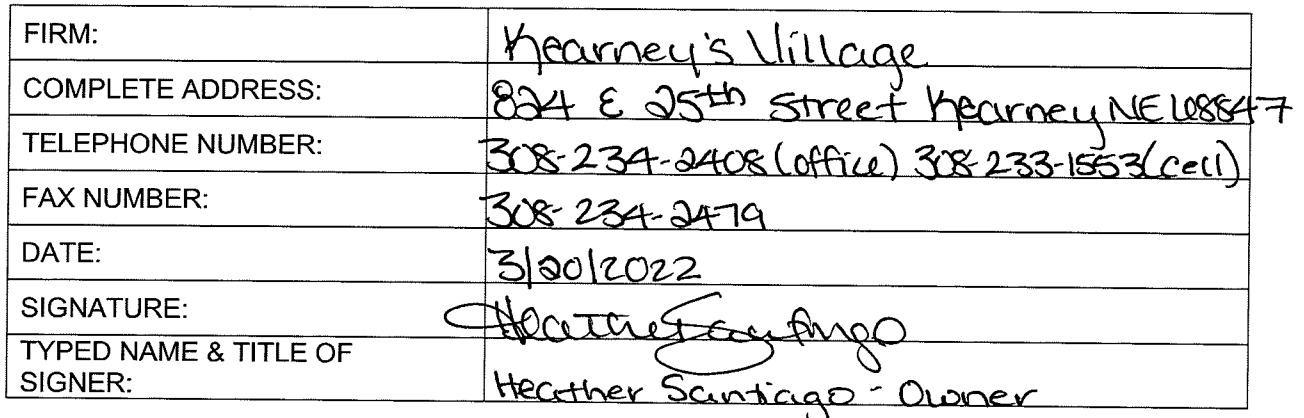 FIRM: Kearney's Village
COMPLETE ADDRESS: 824 E 25th Street Kearney NE 68847
TELEPHONE NUMBER: 308-234-2408 (office) 308-233-1553 (cell)
FAX NUMBER: 308-234-2479
DATE: 3/20/2022
SIGNATURE: Heather Santiago
TYPED NAME & TITLE OF
SIGNER: Heather Santiago - Owner